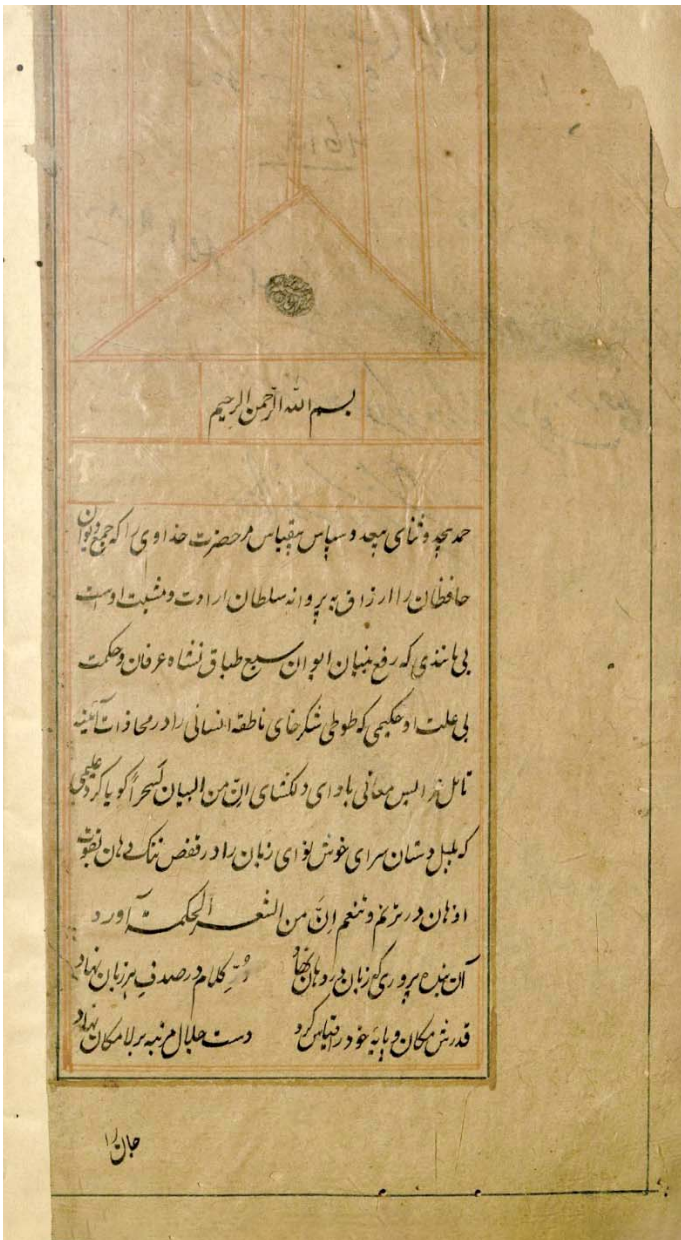 بسم الله الرحمن الرحيم
حمد بیحد و ثنای بیعدد و سپاس بیقیاس مر حضرت خداوندی را که جمع دیوان
حافظان را ارزاق به پروانه سلطان ارادت و مشیت اوست
بی مانندی که رفع بنیان ایوان سبع طباق نشاه عرفان و حکمت
بی علت او حکیمی که طوطی شکر خای ناطقه انسانی را در محاذات آئینه
تامل معانی بادای دلکشای ان من البیان لسحراً گویا کرد علیمی
که بلبل دستان سرای خوش نوای زبان را در قفص تنک دهان بقوت
اذهان در ترنم و تنغم انّ من الشعر لحکمة آورد
آن بنده پروری که زبان در دهان نهاد درّ کلام در صدف هر زبان نهاد
قدرش مکان و پایه خود را قیاس کرد دست جلال مرتبه بر لامکان نهاد
جان را